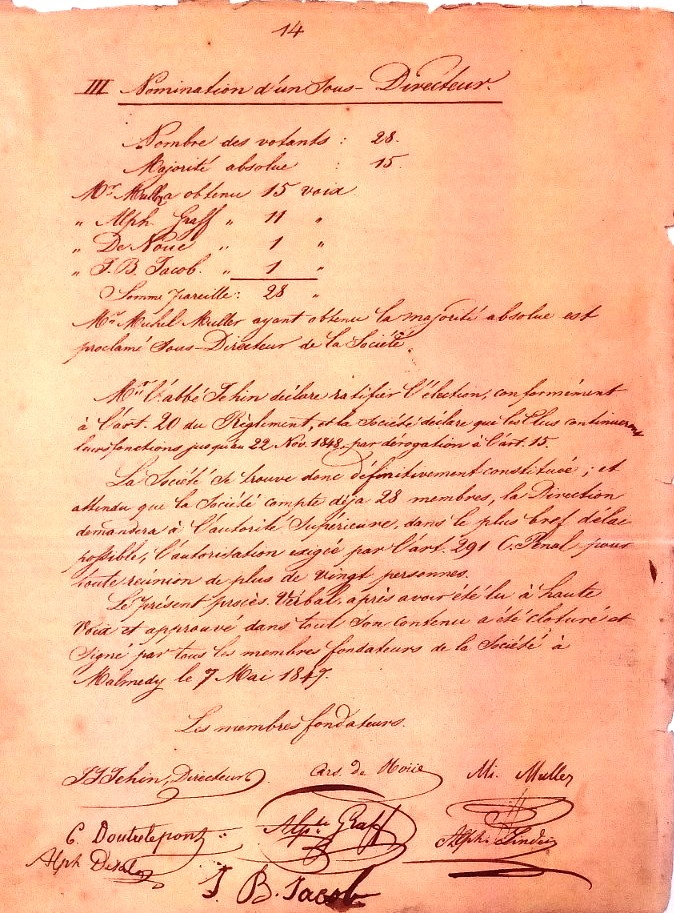 14
III Nomination d'un Sous-Directeur.
Nombre des votants : 28.
Majorité absolue : 15.
Mr Muller a obtenu 15 voix
" Alph. Graff " 11 "
" De Noüe " 1 "
" J. B. Jacob. " 1 "
Somme pareille : 28 "
Mr Michel Muller ayant obtenu la majorité absolue est
proclamé Sous-Directeur de la Société
Mr l'abbé Jehin déclare ratifier l'élection, conformément
à l'art. 20 du Règlement, et la Société déclare que les Elus continueront
leurs fonctions jusqu'au 22 Nov. 1848, par dérogation à l'art. 15
La Société se trouve donc définitivement constituée ; et
attendu que la Société compte déjà 28 membres, la Direction
demandera à l'autorité Supérieure, dans le plus bref délai
possible, l'autorisation exigée par l'art. 291 C. Pénal, pour
toute réunion de plus de vingt personnes.
Le présent procès-Verbal, après avoir été lu à haute
Voix et approuvé dans tout son contenu a été cloturé et
Signé par tous les membres fondateurs de la Société à
Malmedy le 7 Mai 1847.
Les membres fondateurs.
J J Jehin, Directeur. Ars. de Noüe Mi. Muller
C Doutrelepont Alph. Graff Alph.
Alph
J. B. Jacob